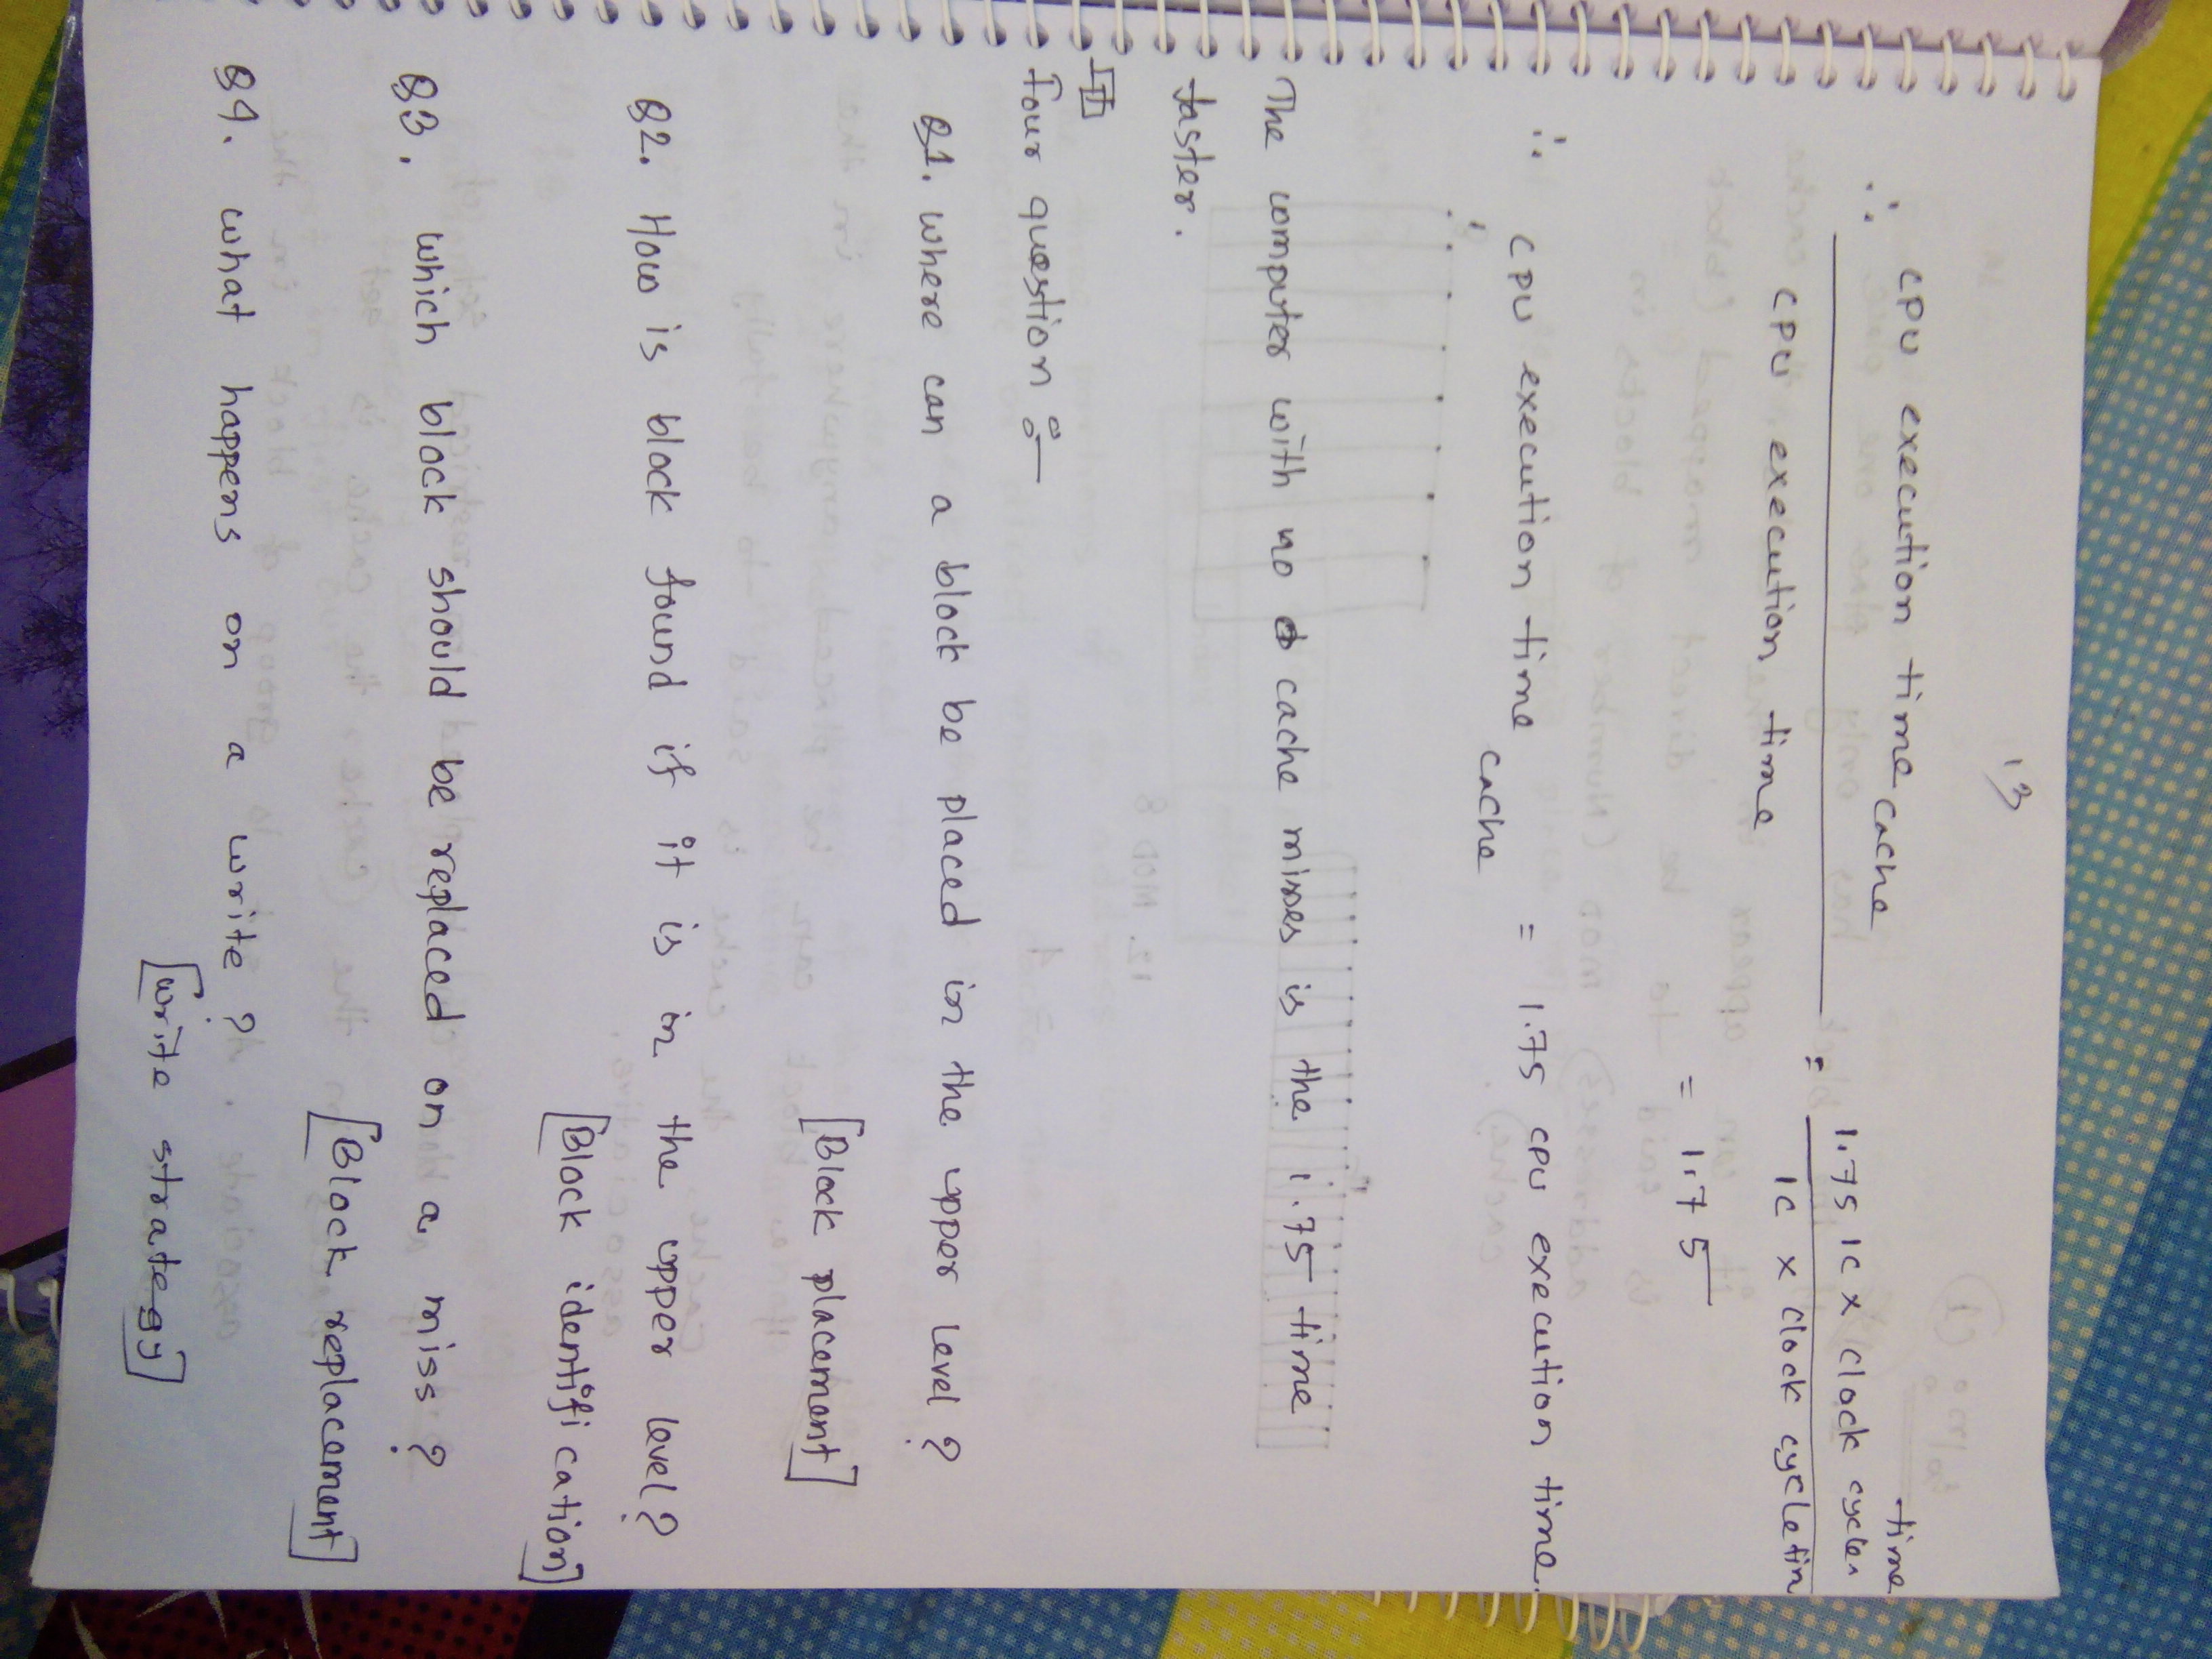 13
∴ CPU execution time cache
CPU execution time
=
time
1.75 IC x Clock cycle
IC x Clock cycle tim
= 1.75
∴ CPU execution time cache = 1.75 CPU execution time.
The computer with no cache misses is the 1.75 time
faster.
Four question :-
Q1. Where can a block be placed in the upper level ?
[Block placement]
Q2. How is block found if it is in the upper level?
[Block identification]
Q3. Which block should be replaced on a miss ?
[Block replacement]
Q4. What happens on a write ?
[write strategy]